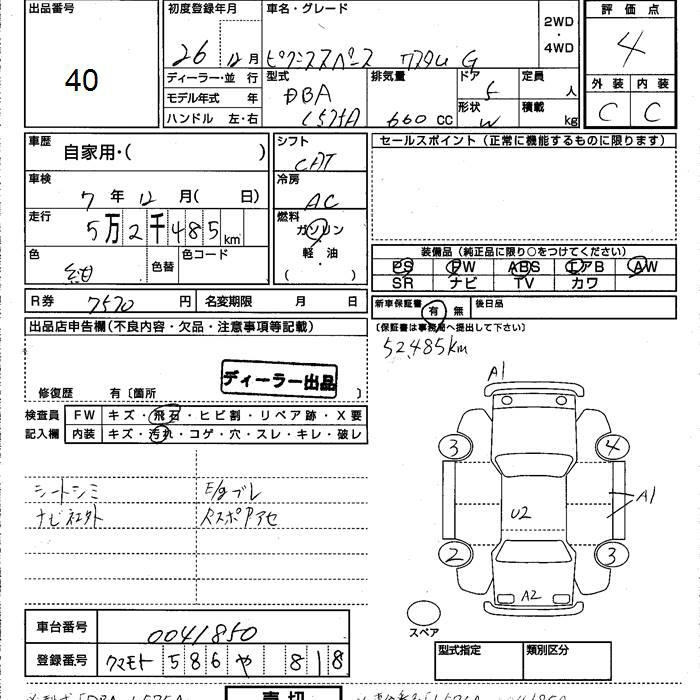 出品番号
40
初度登録年月
26 12月
車名・グレード
2WD
・
4WD
評価点
4
外装 内装
C C
ディーラー・並行
モデル年式 年
ハンドル 左・右
型式
DBA
L575A
排気量
660 cc
ドア
5
形状
W
定員
人
積載
kg
車歴
自家用・( )
車検
7年12月( 日)
走行
5万2千485km
色
色替
色コード
シフト
CAT
冷房
AC
燃料
ガソリン
・
軽・油
( )
セールスポイント(正常に機能するものに限ります)
装備品(純正品に限り○をつけてください)
PS PW ABS エアB AW
SR ナビ TV カワ
R券 7570円 名変期限 月 日
新車保証書 有 無 後日品
〔保証書は事務局へ提出して下さい〕
52,485km
出品店申告欄(不良内容・欠品・注意事項等記載)
ディーラー出品
修復歴 有〔箇所 〕
検査員 FW キズ・飛石・ヒビ割・リペア跡・X要
記入欄 内装 キズ・汚れ・コゲ・穴・スレ・キレ・破レ
シートシミ
E/gブレ
A1
3
4
A1
U2
2
3
A2
スペア
車台番号 0041850
登録番号 クマモト 586 や 818
型式指定 類別区分
売切